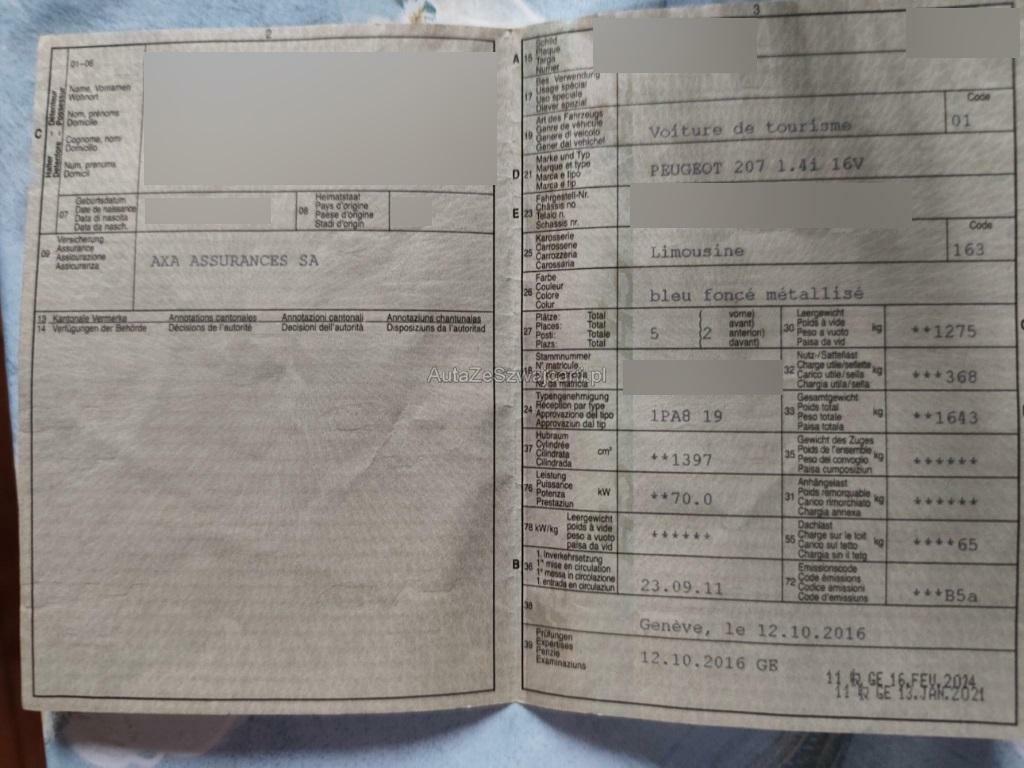 2
01-06
C
Halter - Détenteur
Detentore - Possessur
Name, Vornamen
Wohnort
Nom, prénoms
Domicile
Cognome, nomi
Domicilio
Num, prenums
Domicil
07
Geburtsdatum
Date de naissance
Data di nascita
Data da nasch.
08
Heimatstaat
Pays d'origine
Paese d'origine
Stadi d'origin
09
Versicherung
Assurance
Assicurazione
Assicuranza
AXA ASSURANCES SA
13 Kantonale Vermerke Annotations cantonales Annotazioni cantonali Annotaziuns chantunalas
14 Verfügungen der Behörde Décisions de l'autorité Decisioni dell'autorità Disposiziuns da l'autoritad
3
A 15
Schild
Plaque
Targa
Numer
17
Bes. Verwendung
Usage spécial
Uso speciale
Diever spezial
19
Art des Fahrzeugs
Genre de véhicule
Genere di veicolo
Gener dal vehichel
Voiture de tourisme
Code
01
D 21
Marke und Typ
Marque et type
Marca e tipo
Marca e tip
PEUGEOT 207 1.4i 16V
E 23
Fahrgestell-Nr.
Châssis no
Telaio n.
Schassis nr.
25
Karosserie
Carrosserie
Carrozzeria
Carossaria
Limousine
Code
163
26
Farbe
Couleur
Colore
Colur
bleu foncé métallisé
27
Plätze: Total
Places: Total
Posti: Totale
Plazs: Total
5
{2
vorne)
avant)
anteriori)
davant)
30
Leergewicht
Poids à vide
Peso a vuoto
Paisa da vid
kg
**1275
18
Stammnummer
N° matricule
Nr. da matricla
32
Nutz-/Sattellast
Charge utile/sellette
Carico utile/sella
Chargia utila/sella
kg
***368
24
Typengenehmigung
Réception par type
Approvazione del tipo
Approvaziun dal tip
1PA8 19
33
Gesamtgewicht
Poids total
Peso totale
Paisa totala
kg
**1643
37
Hubraum
Cylindrée
Cilindrata
Cilindrada
cm³
**1397
35
Gewicht des Zuges
Poids de l'ensemble
Peso del convoglio
Paisa cumposiziun
kg
******
76
Leistung
Puissance
Potenza
Prestaziun
kW
**70.0
31
Anhängelast
Poids remorquable
Carico rimorchiato
Chargia annexa
kg
******
78 kW/kg
Leergewicht
poids à vide
peso a vuoto
paisa da vid
******
55
Dachlast
Charge sur le toit
Carico sul tetto
Chargia sin il tetg
kg
****65
B 36
1. Inverkehrsetzung
1re mise en circulation
1a messa in circolazione
1. entrada en circulaziun
23.09.11
72
Emissionscode
Code émissions
Codice emissioni
Code d'emissiuns
***B5a
38
Genève, le 12.10.2016
39
Prüfungen
Expertises
Perizie
Examinaziuns
12.10.2016 GE
11 GE 16.FEV.2014
11 GE 13.JAN.2021
AutaZeSzwajcarii.pl